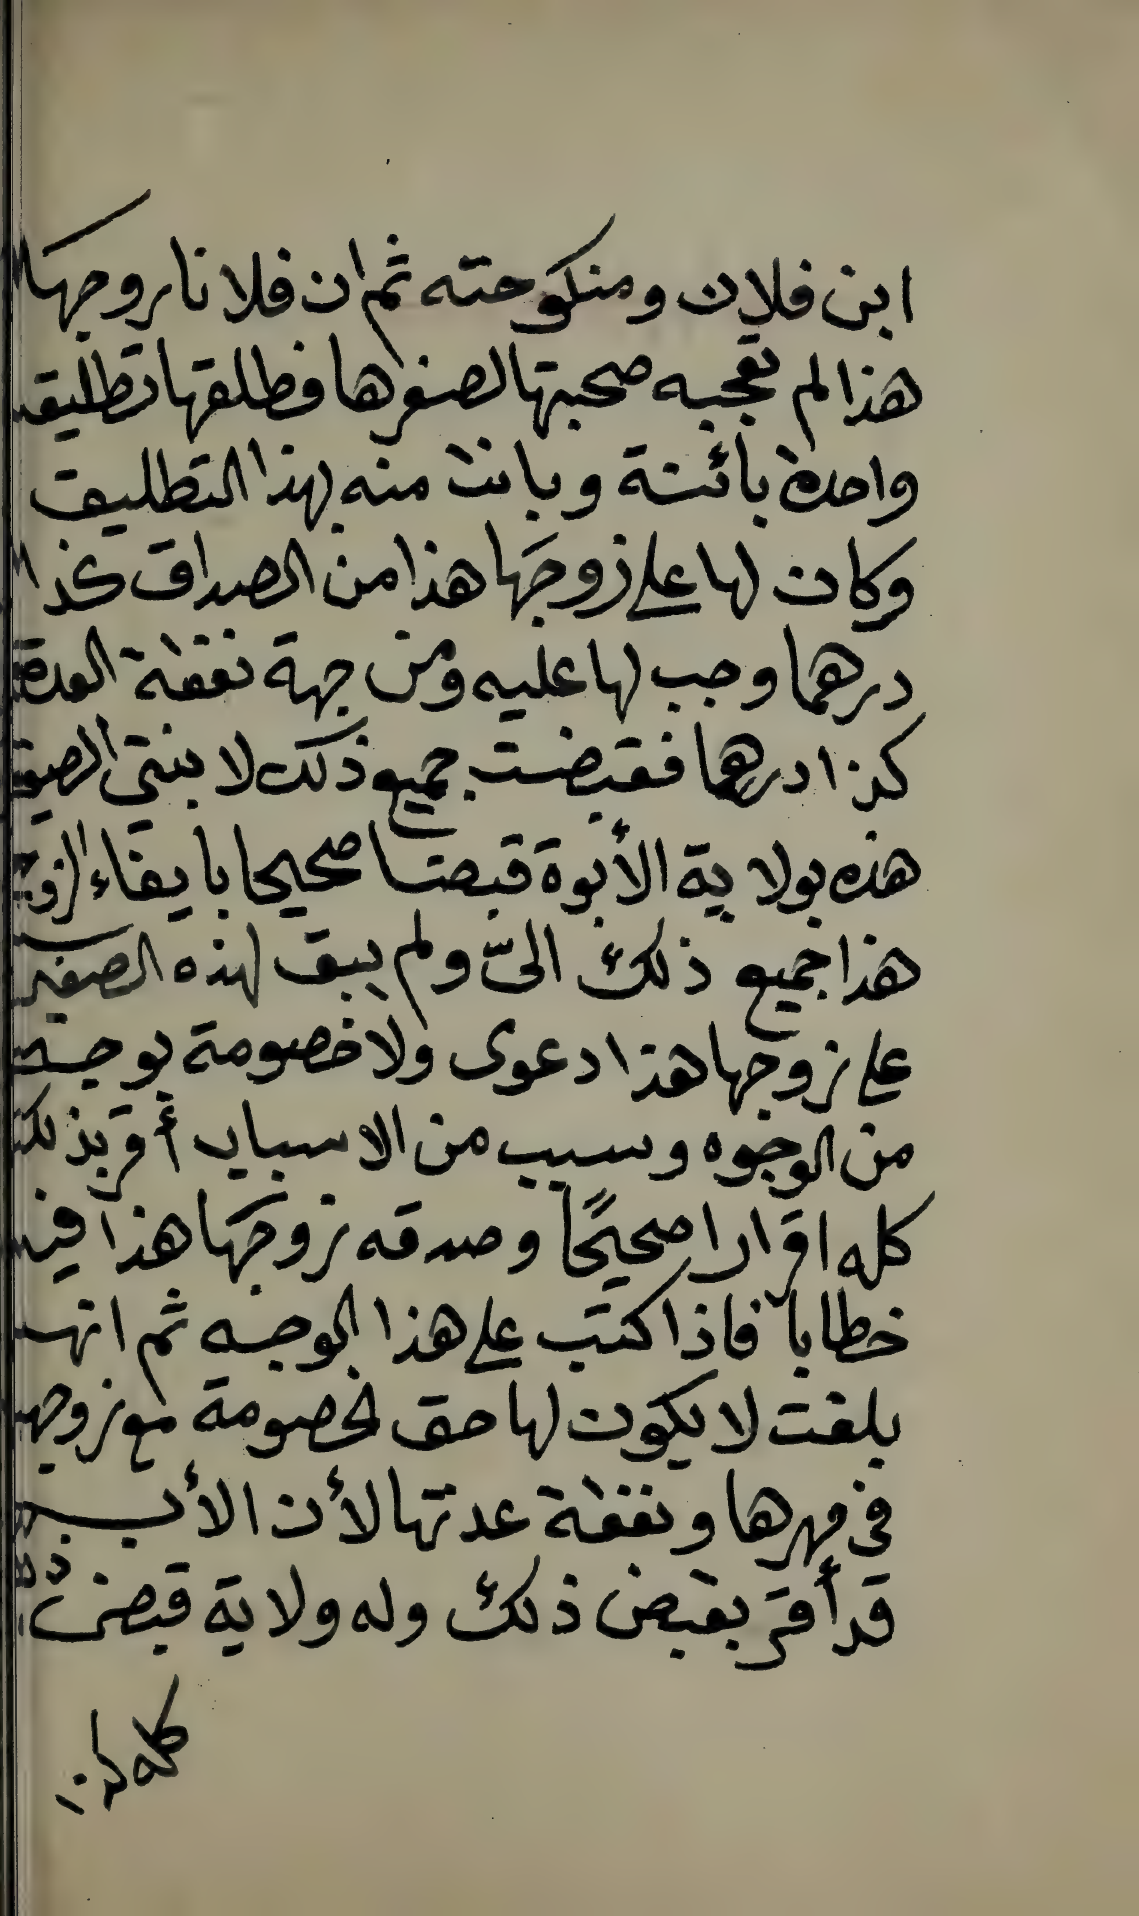 ابن فلان ومنكوحته ثم ان فلانا زوجها
هذا لم تعجبه صحبتها لصغرها فطلقها تطليقة
واحدة بائنة وبانت منه بهذا التطليق
وكان لها على زوجها هذا من الصداق كذا
درهما وجب لها عليه ومن جهة نفقة العدة
كذا درهما فقبضت جميع ذلك لابنتي الصغيرة
هذه بولاية الأبوة قبضا صحيحا بايفاء الزوج
هذا جميع ذلك الىّ ولم يبق لهذه الصغيرة
على زوجها هذا دعوى ولا خصومة بوجه
من الوجوه وسبب من الاسباب أقر بذلك
كله اقرارا صحيحًا وصدقه زوجها هذا فيه
خطابا فاذا كتب على هذا الوجه ثم انها
بلغت لا يكون لها حق لخصومة مع زوجها
في مهرها ونفقة عدتها لأن الأب
قد أقر بقبض ذلك وله ولاية قبض
كله لان